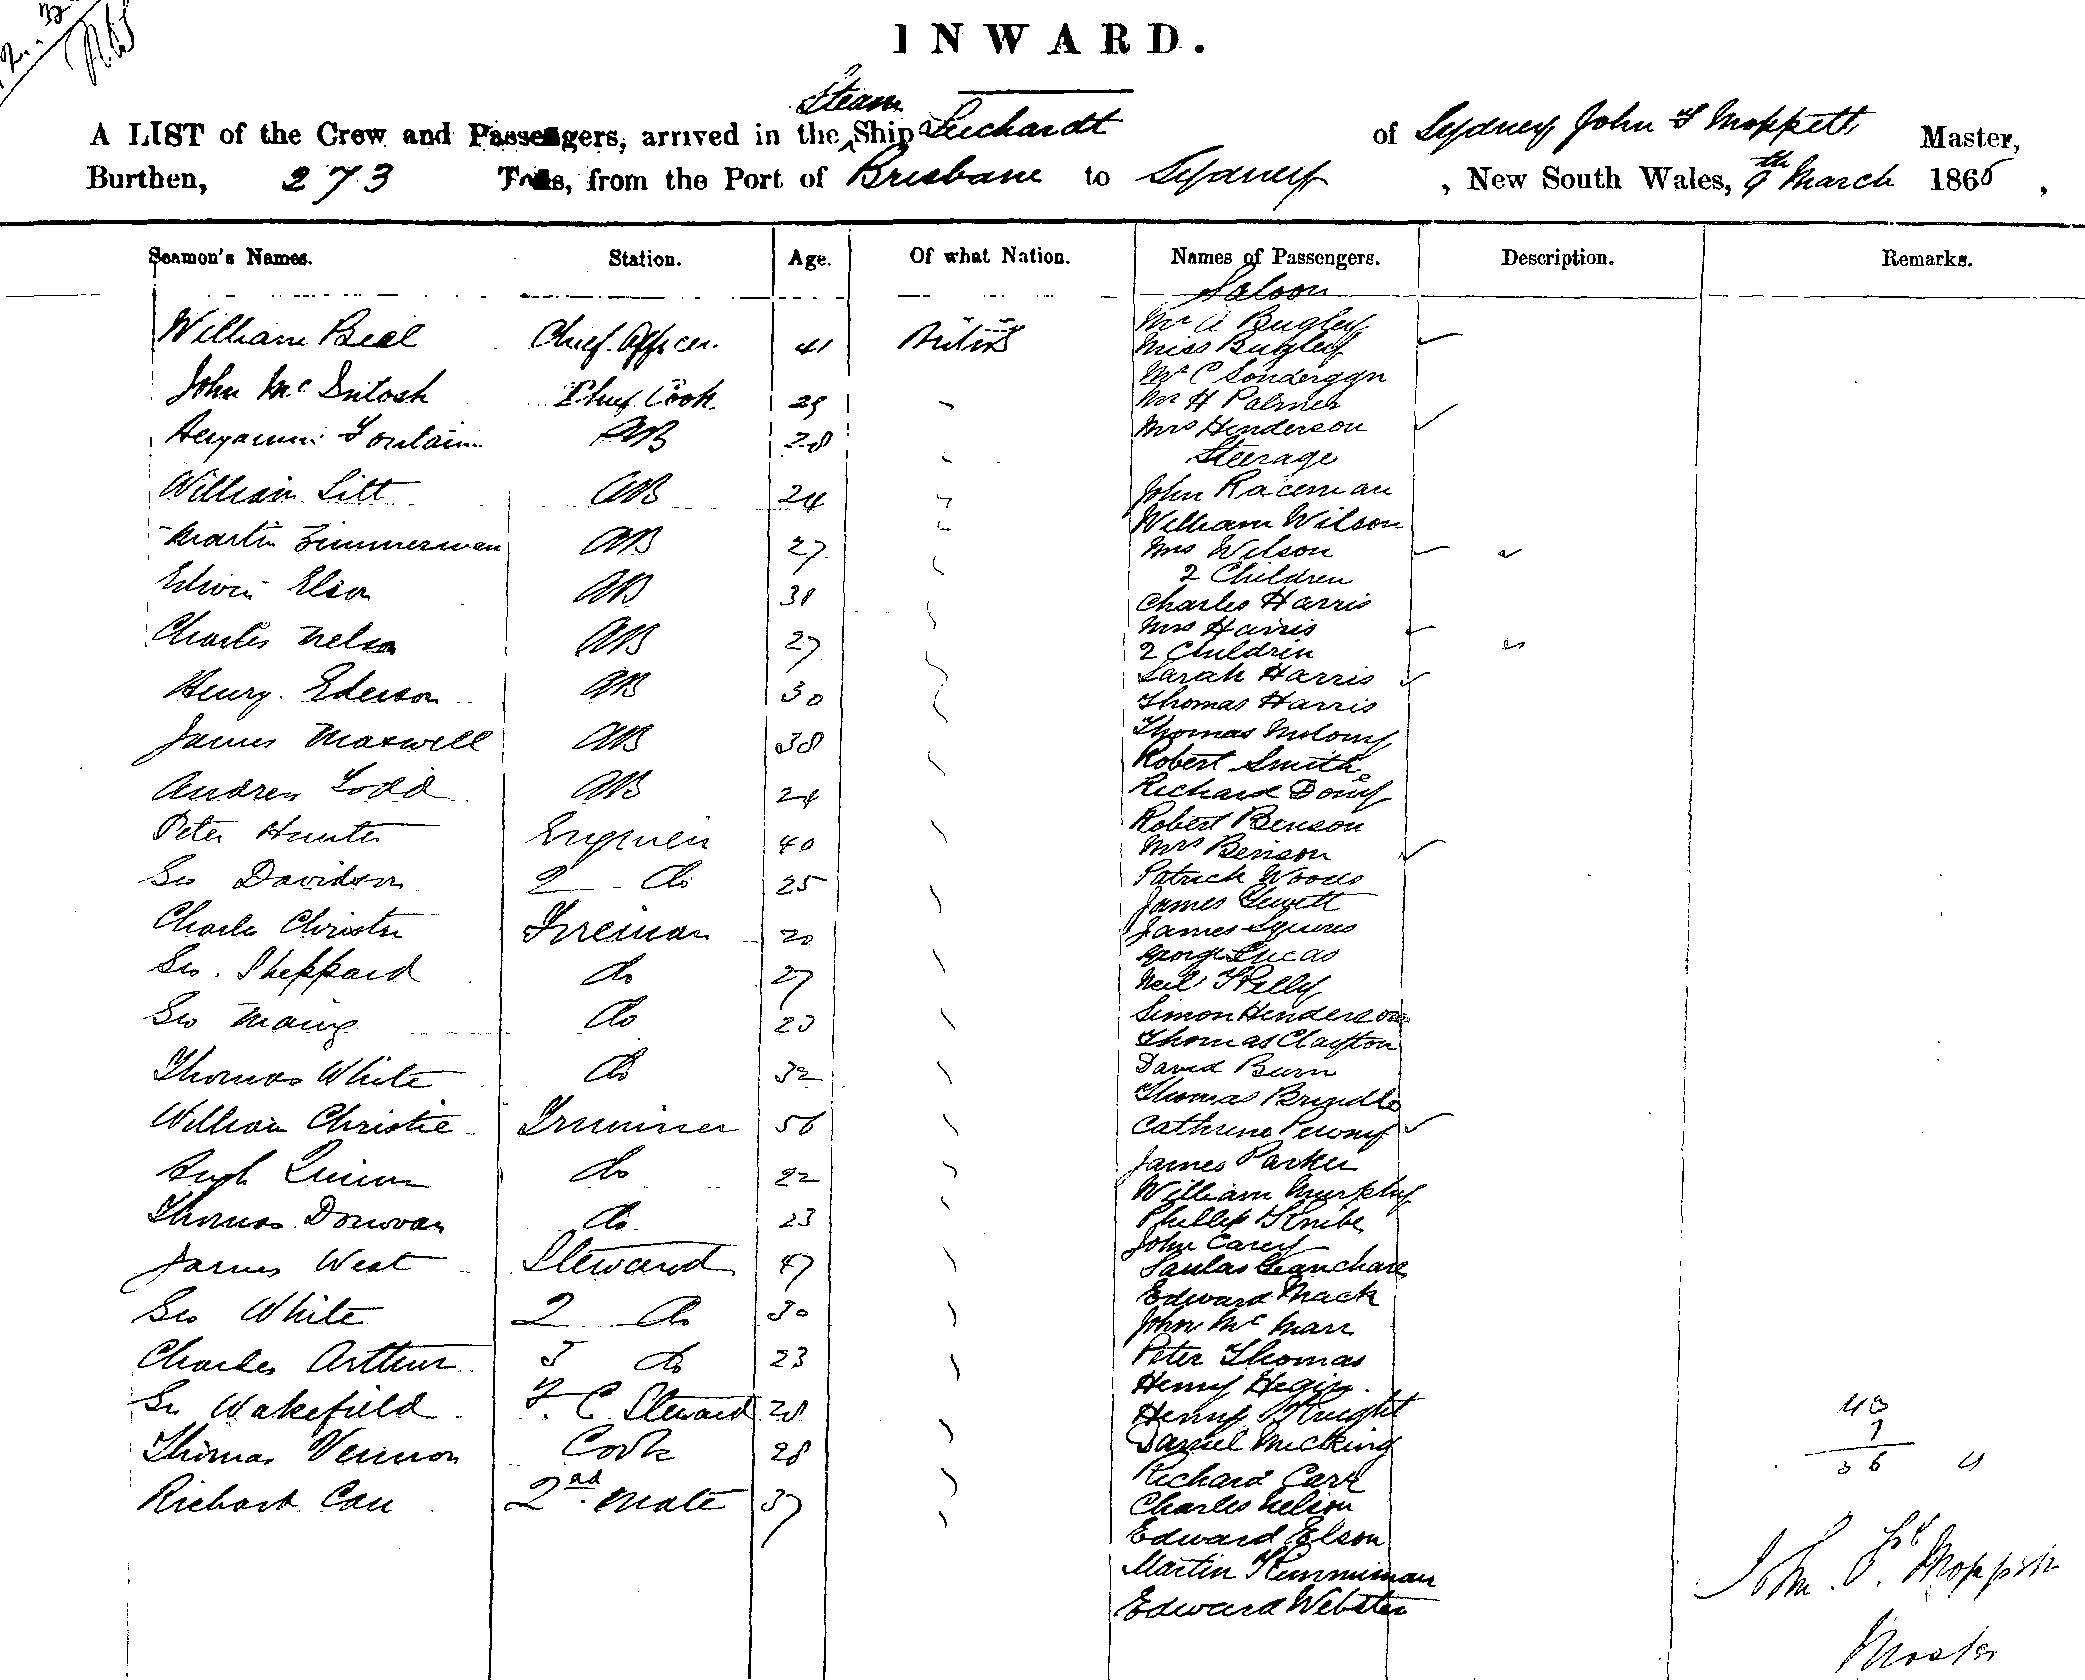 INWARD.
A LIST of the Crew and Passengers, arrived in the Steam Ship Leichardt of Sydney John F Moppett Master,
Burthen, 273 Tons, from the Port of Brisbane to Sydney, New South Wales, 9th March 1865,
Seamen's Names. Station. Age. Of what Nation. Names of Passengers. Description. Remarks.
Saloon
William Beal Chief Officer 41 British Mr A Bugley
Miss Bugley
Mr C
John McIntosh Chief Cook 29 Mr H Palmer
Benjamin Fontain AB 28 Mrs Henderson
Steerage
William Litt AB 24 John Raceman
William Wilson
Martin Zimmerman AB 27 Mrs Wilson
2 Children
Edwin Elson AB 38 Charles Harris
Mrs Harris
Charles Nelson AB 27 2 Children
Sarah Harris
Henry Ederson AB 30 Thomas Harris
Thomas Molony
James Maxwell AB 38 Robert Smith
Andrew Todd AB 24 Richard
Peter Hunter Engineer 40 Robert Benson
Mrs Benson
Geo Davidson 2 do 25 Patrick Woods
James Hewett
Charles Christie Fireman 20 James Squires
George Lucas
Geo. Sheppard do 27 Neil Kelly
Geo do 23 Simon Henderson
Thomas Clayton
Thomas White do 32 David Burn
Thomas Brindle
William Christie Trimmer 56 Cathrine
Hugh Quinn do 22 James Parker
William Murphy
Thomas Donovan do 23 Phillip
John Carey
James West Steward 47
Edward Mack
Geo White 2 do 30 John McMarr
Charles Arthur 3 do 23 Peter Thomas
Henry
Geo Wakefield F. C Steward 28 Henry Knight
Thomas Vernon Cook 28 Daniel McKing
Richard Carr
Richard Carr 2nd Mate 37 Charles Nelson
Edward Elson
Martin
Edward Webster
John F. Moppett
Master